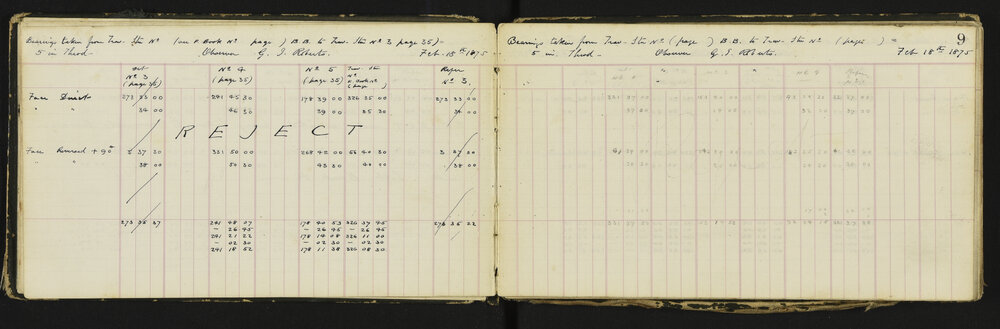 Bearings taken from Trav. Stn No (on F. Book No page ) B.B. to Trav. Stn No 3 page 35) =
5 in. Theod. Observer G. J. Roberts. Feb. 18th 1875
No 3 No 4 No 5 Trav Stn Refer
(page 36) (page 35) (page 35) No No 3.
F. Book No
(page )
Face Direct 273 33 00 241 45 30 178 39 00 326 35 00 273 33 00
" " 34 00 46 30 39 00 35 30 34 00
REJECT
Face Reversed + 90° 3 37 30 331 50 00 268 42 00 56 40 30 3 37 30
" " 38 00 50 30 43 30 40 00 38 00
273 35 37 241 48 07 178 40 53 326 37 45 273 35 22
— 26 45 — 26 45 — 26 45
241 21 22 178 14 08 326 11 00
— 02 30 — 02 30 — 02 30
241 18 52 178 11 38 326 08 30
9
Bearings taken from Trav. Stn No (page ) B.B. to Trav. Stn No (page ) =
5 in. Theod. Observer G. J. Roberts. Feb 18th 1875